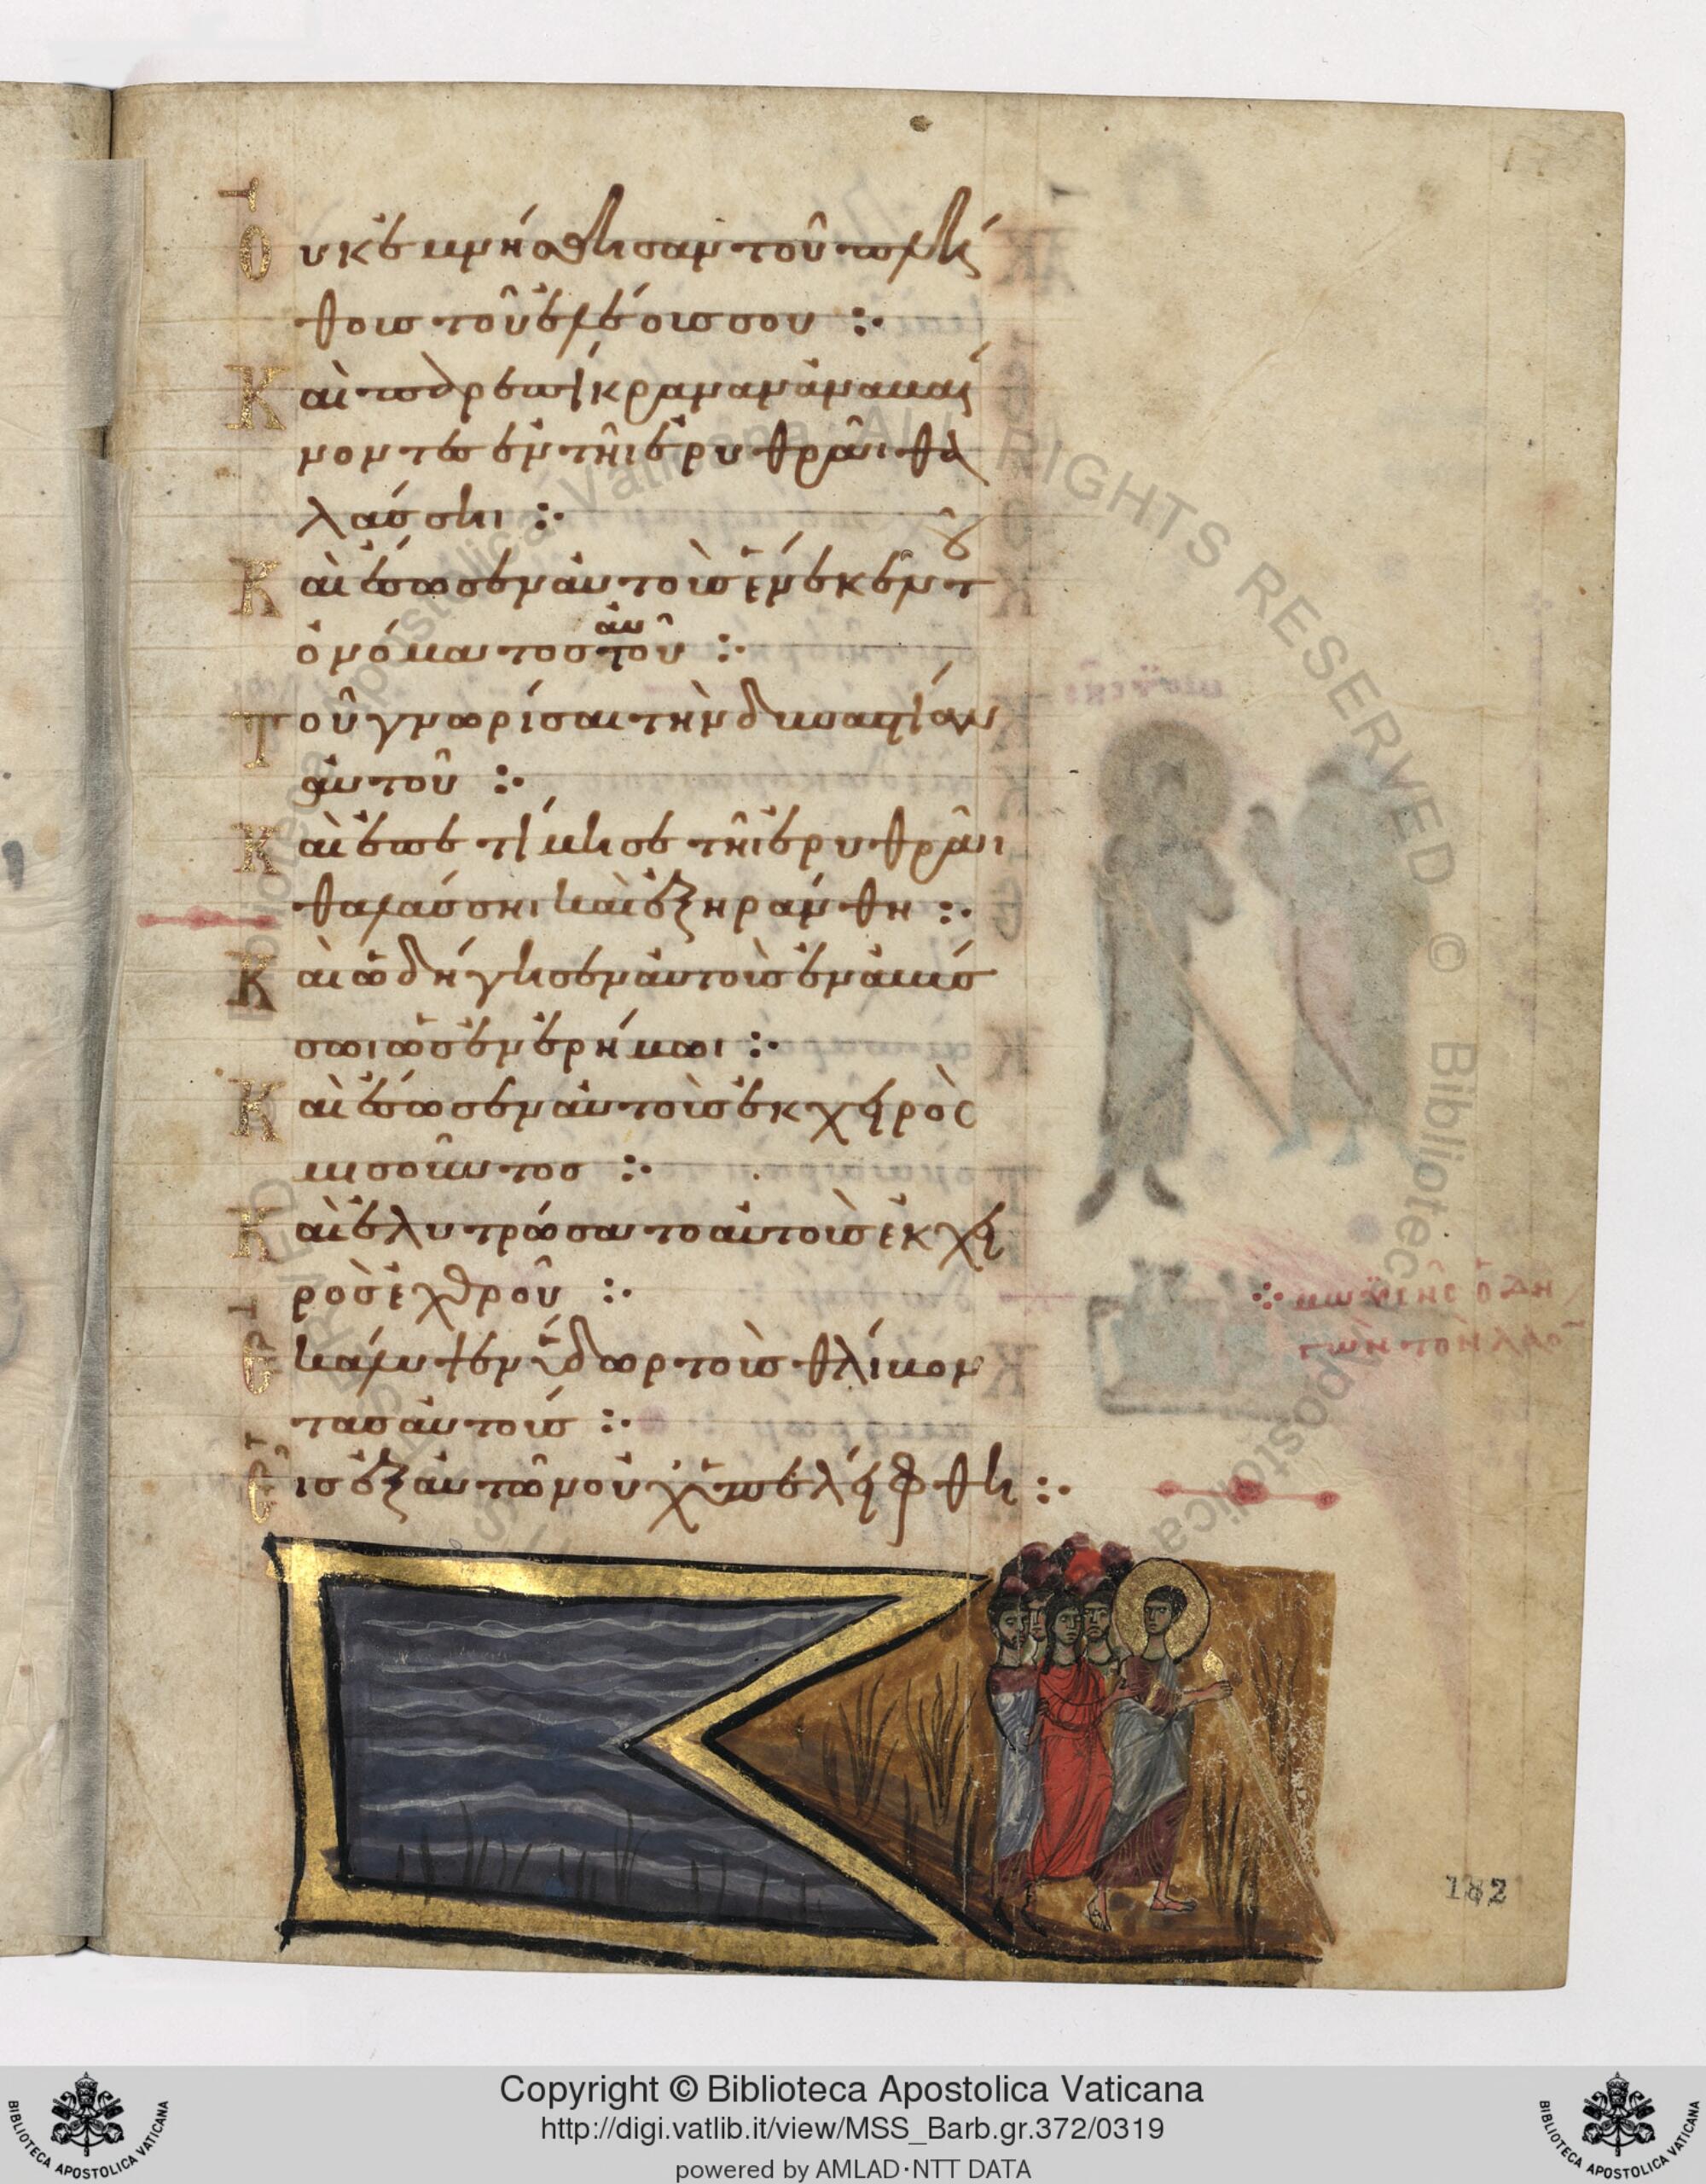 Οὐκ ἐμνήσθησαν τοῦ πλή
θους τοῦ ἐλέους σου :·
Καὶ παρεπίκραναν ἀναβαί
νοντες ἐν τῆι ἐρυθρᾶι θα
λάσσηι :·
Καὶ ἔσωσεν αὐτοὺς ἕνεκεν τοῦ
ὀνόματος αὐτοῦ :·
Τοῦ γνωρίσαι τὴν δυναστείαν
αὐτοῦ :·
Καὶ ἐπετίμησε τῆι ἐρυθρᾶι
θαλάσσηι καὶ ἐξηράνθη :·
Καὶ ὡδήγησεν αὐτοὺς ἐν ἀβύσ
σωι ὡς ἐν ἐρήμωι :·
Καὶ ἔσωσεν αὐτοὺς ἐκ χειρὸς
μισοῦντος :·
Καὶ ἐλυτρώσατο αὐτοὺς ἐκ χει
ρὸς ἐχθροῦ :·
Ἐκάλυψεν ὕδωρ τοὺς θλίβον
τας αὐτούς :·
Εἷς ἐξ αὐτῶν οὐχ ὑπελείφθη :·
μωϋσῆς ὁδη
γῶν τὸν λαὸ
182
Copyright © Biblioteca Apostolica Vaticana
http://digi.vatlib.it/view/MSS_Barb.gr.372/0319
powered by AMLAD·NTT DATA
BIBLIOTECA APOSTOLICA VATICANA
BIBLIOTECA APOSTOLICA VATICANA